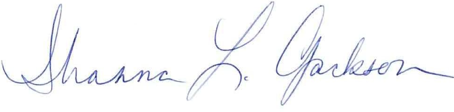 Shanna L. Jackson